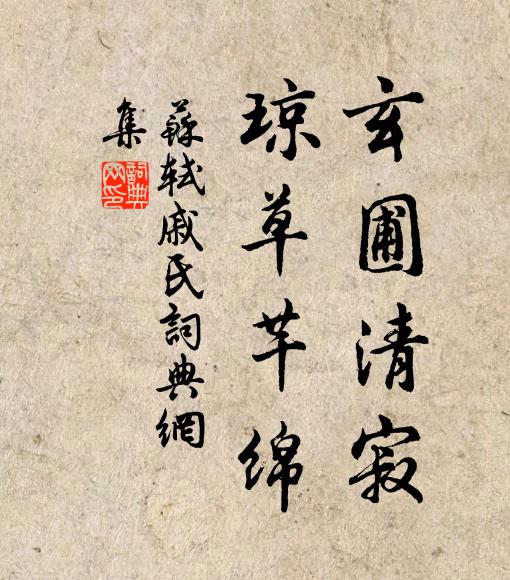 玄圃清寂
琼草芊绵
蘇轼戚氏詞典網
集
詞典网印